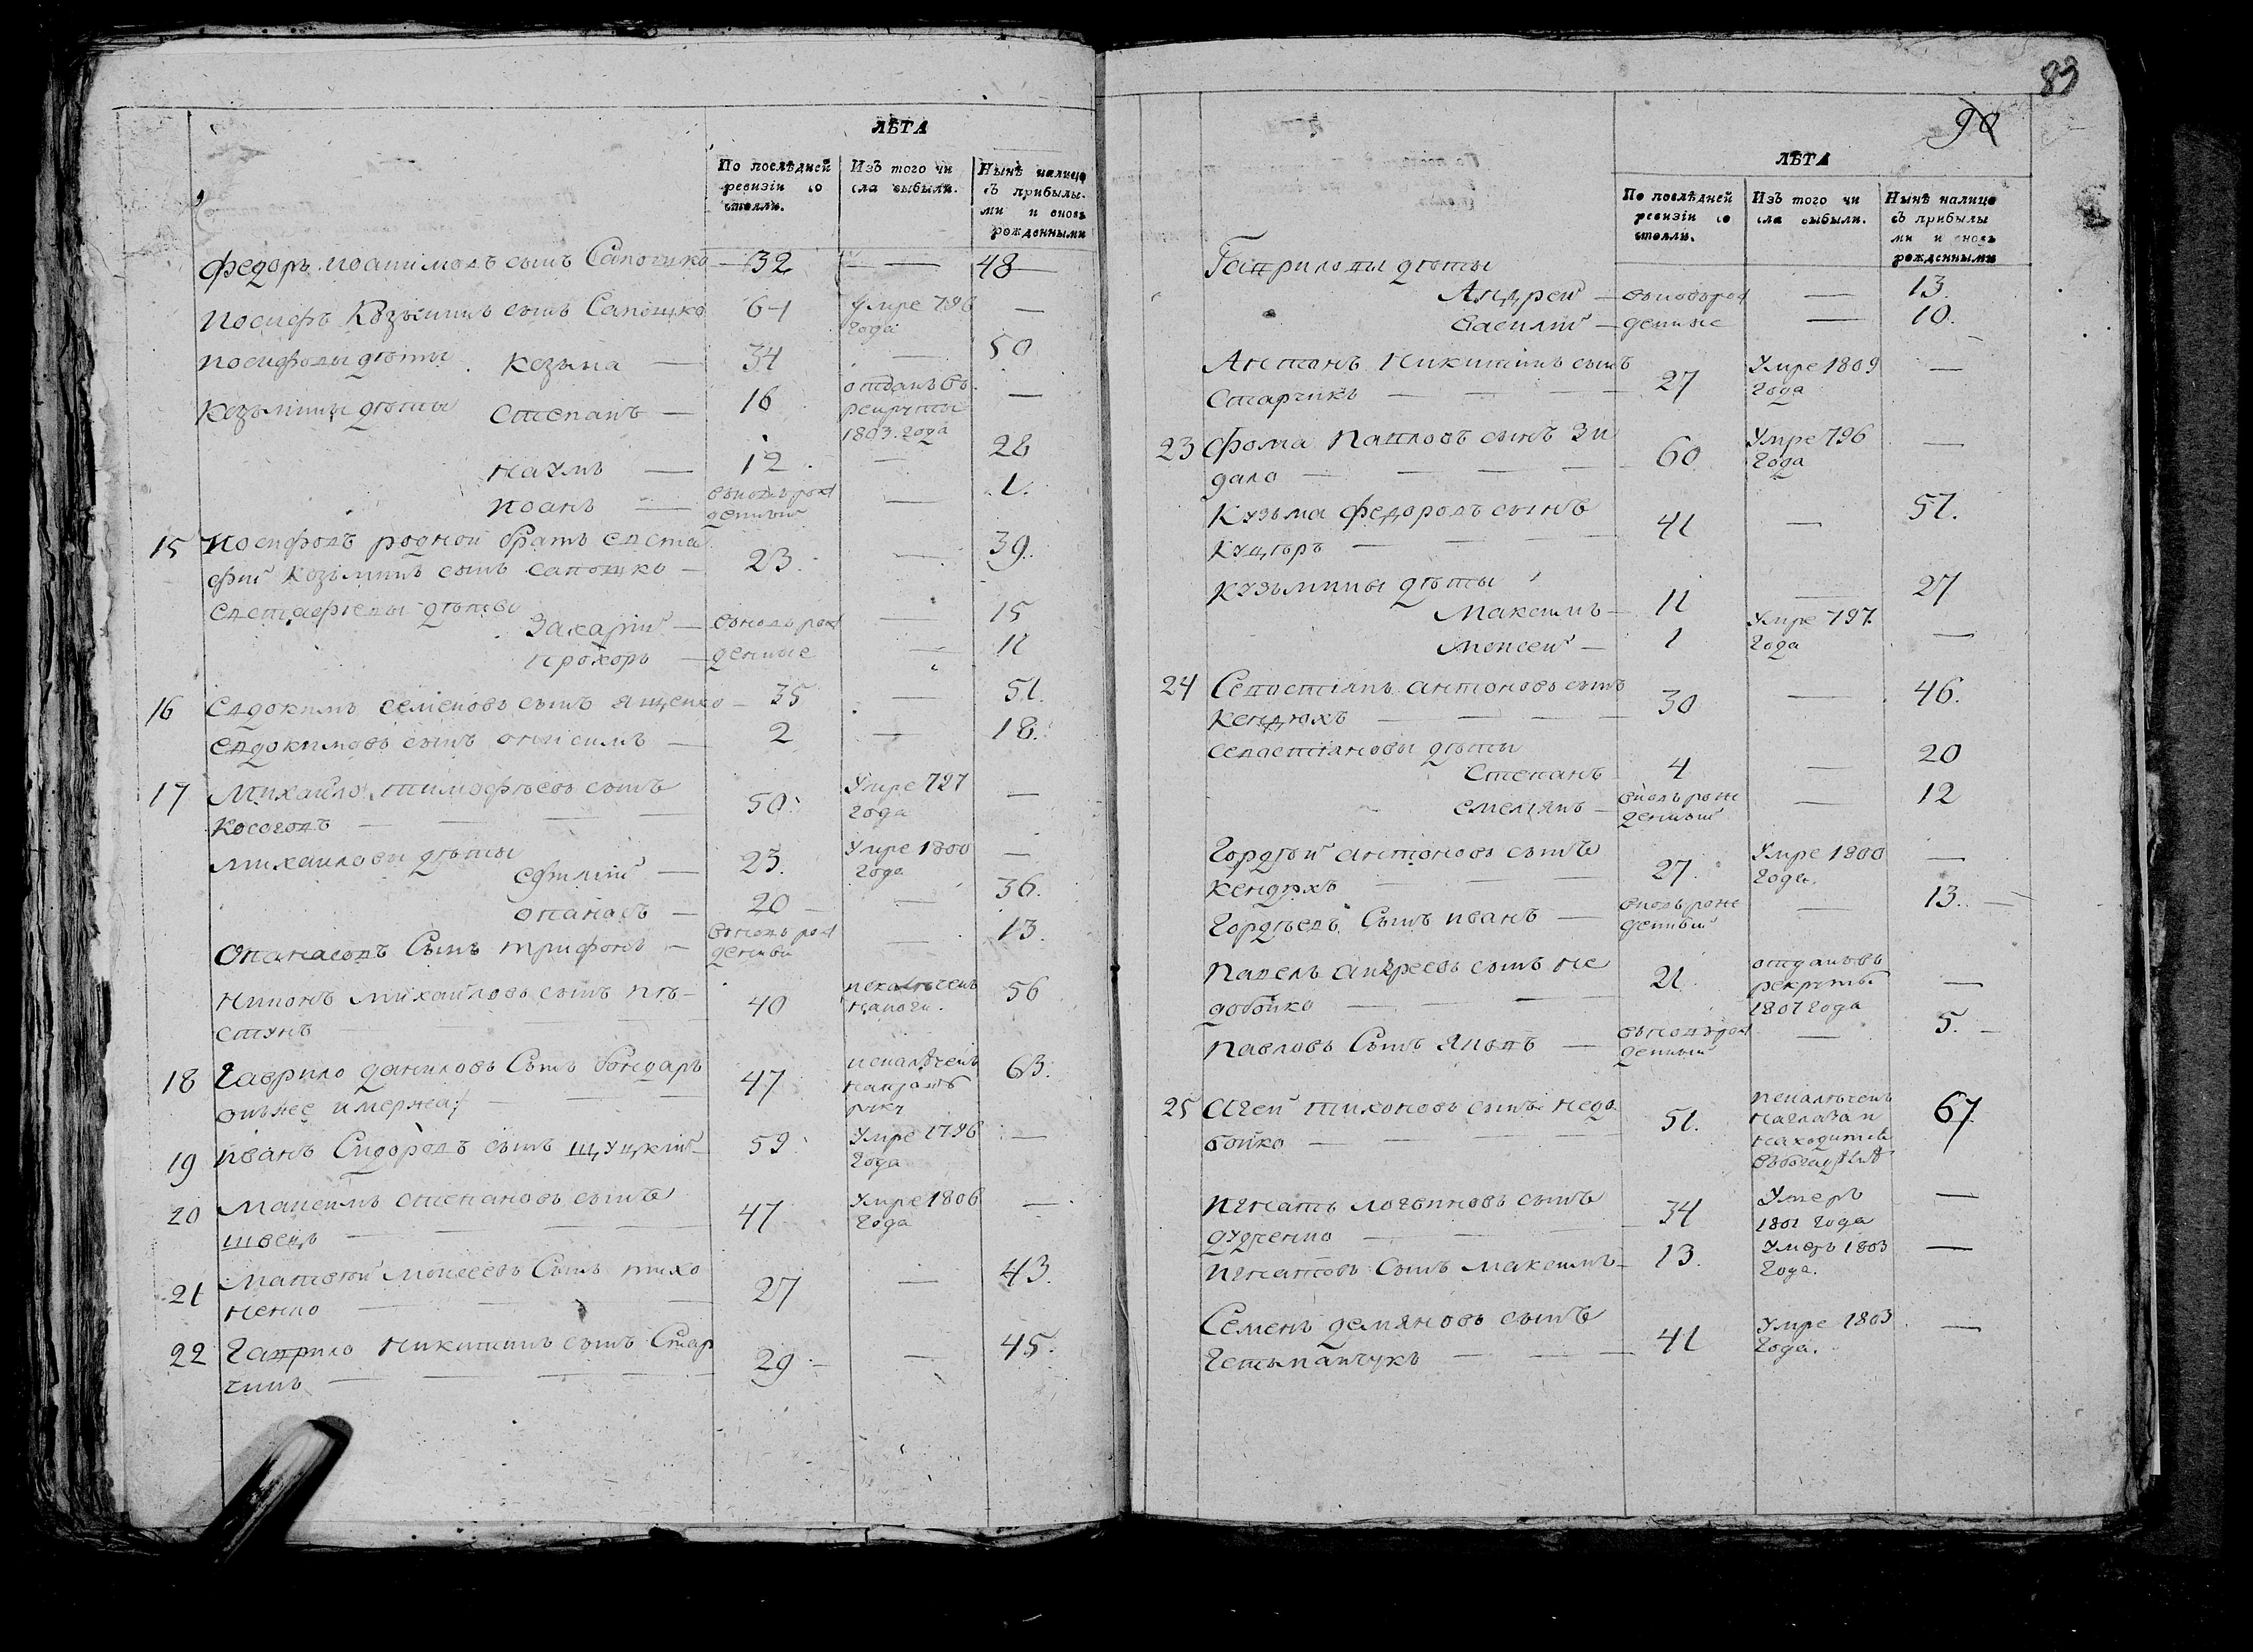 ЛѢТА
По послѣдней ревизіи со стояли.
Изъ того чи сла выбыли.
Нынѣ налицо съ прибылы ми и вновь рожденными
Федоръ сынъ 32 — 48
Иосифъ Козьминъ сынъ 64 Умре 796 года —
Иосифовы дѣты Козьма — 34 — 50
Козьмины дѣты Степанъ — 16 отданъ въ рекруты 1803. года —
Наумъ — 12 — 28
Иоанъ — вновь рож денный — 1.
15 Иосифовъ родной братъ Евста
фій Козьминъ сынъ Сапошко — 23. — 39.
Евстафіевы дѣты
Захарій — вновь рож — 15
Прохоръ — денные — 11
16 Евдокимъ Семеновъ сынъ Ященко — 35 — 51.
Евдокимовъ сынъ Онисимъ — 2 — 18.
17 Михайло Тимофѣевъ сынъ
Косоговъ — 50. Умре 797 года —
Михайловы дѣты
Ефилій — 25. Умре 1800 года —
Опанасъ — 20 — 36.
Опанасовъ Сынъ Трифонъ — вновь рож денный — 13.
Никонъ Михайловъ сынъ Пѣ-
стунъ — 40 искалѣченъ на ноги. 56
18 Гаврило Даниловъ Сынъ Бондарь
47 искалѣченъ руку 63.
19 Иванъ Сидоровъ сынъ Щуцкій — 59 Умре 1796 года —
20 Максимъ Степановъ сынъ
Швецъ — 47 Умре 1806 года —
21 Матвѣй Моисеевъ Сынъ Тихо
ненко — 27 — 43.
22 Гаврило Никитинъ сынъ Стар
чикъ — 29 — 45.
89
90
ЛѢТА
По послѣдней ревизіи со стояли.
Изъ того чи сла выбыли.
Нынѣ налицо съ прибылы ми и вновь рожденными
Гавриловы дѣты
Андрей — вновь рож — 13.
Василій — денные — 10.
Антонъ Никитинъ сынъ
Старчикъ — 27 Умре 1809 года —
23 Фома Павловъ сынъ Зи
дало — 60 Умре 796 года —
Кузьма Федоровъ сынъ
41 — 57.
Кузьмины дѣты
Максимъ — 11 — 27
Моисей — 1 Умре 797 года —
24 Севостіянъ Антоновъ сынъ
Кендюхъ — 30 — 46.
Севастіановы дѣты
Степанъ 4 — 20
Емельянъ — вновь рож денный — 12
Гордѣй Антоновъ сынъ
Кендюхъ — 27. Умре 1800 года. —
Гордѣевъ Сынъ Иванъ — вновь рож денный — 13.
Павелъ Андреевъ сынъ Не
добойко — 21. отданъ въ рекруты 1807 года —
Павловъ Сынъ Яковъ — вновь рож денный — 5.
25 Агей Тихоновъ сынъ Недо
бойко — 51. искалѣченъ на глаза и находится 67
Игнатъ Логвиновъ сынъ
Дудченко — 34 Умеръ 1801 года —
Игнатовъ Сынъ Максимъ — 13. Умеръ 1803 года. —
Семенъ Демяновъ сынъ
Гетьманчукъ — 41 Умре 1803 года. —